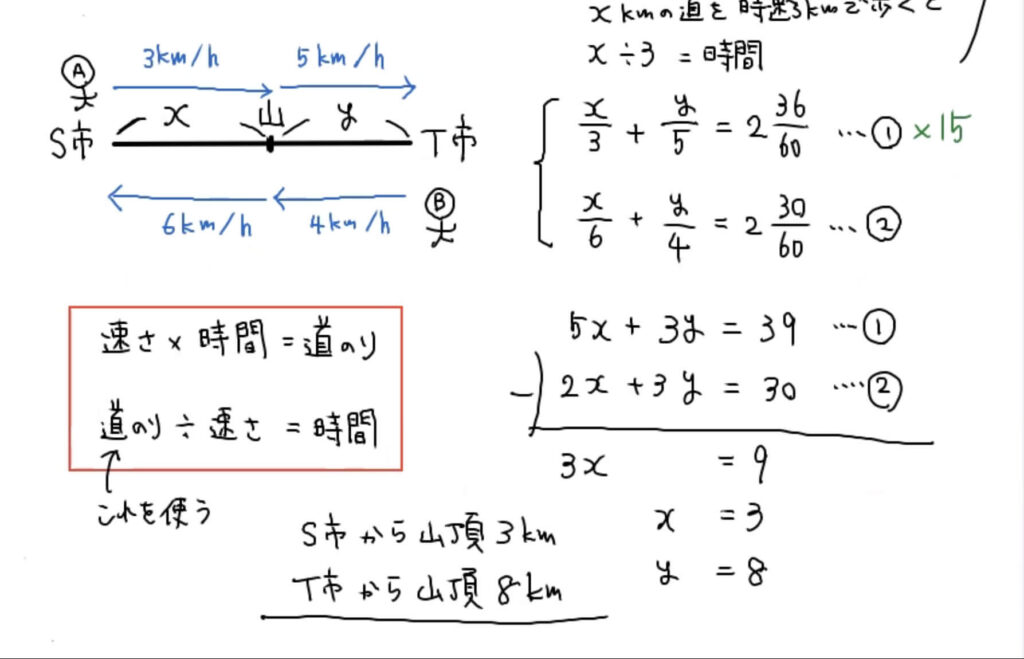 x kmの道を時速3kmで歩くと
x÷3 =時間
3km/h 5km/h
A
x 山 y
S市 T市
6km/h 4km/h
B
x/3 + y/5 = 2 36/60 …① ×15
x/6 + y/4 = 2 30/60 …②
速さ×時間=道のり
道のり÷速さ=時間
これを使う
5x + 3y = 39 …①
−) 2x + 3y = 30 ….②
3x = 9
x = 3
y = 8
S市から山頂3km
T市から山頂8km